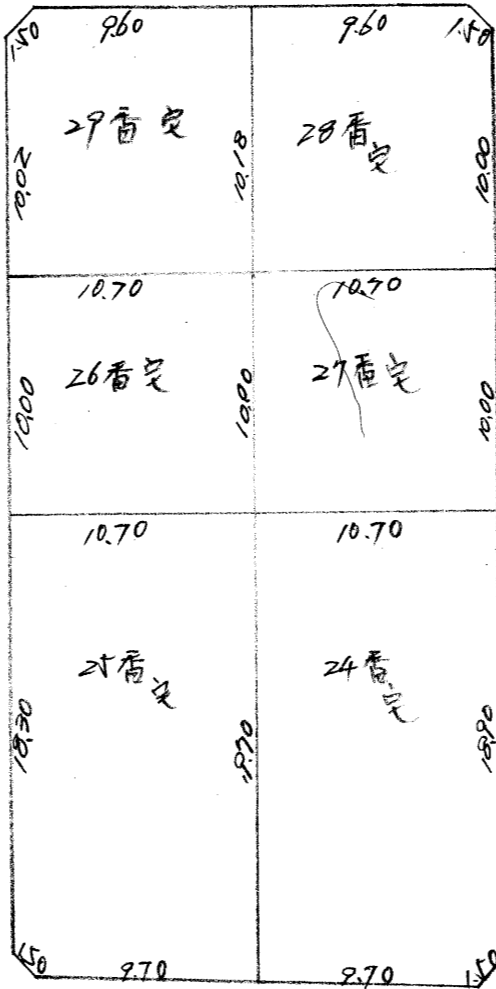 1.50 9.60 9.60 1.50
29番宅 28番宅
10.02 10.18 10.00
10.70 10.70
26番宅 27番宅
10.00 10.00 10.00
10.70 10.70
25番宅 24番宅
18.30 18.90
1.50 9.70 9.70 1.50